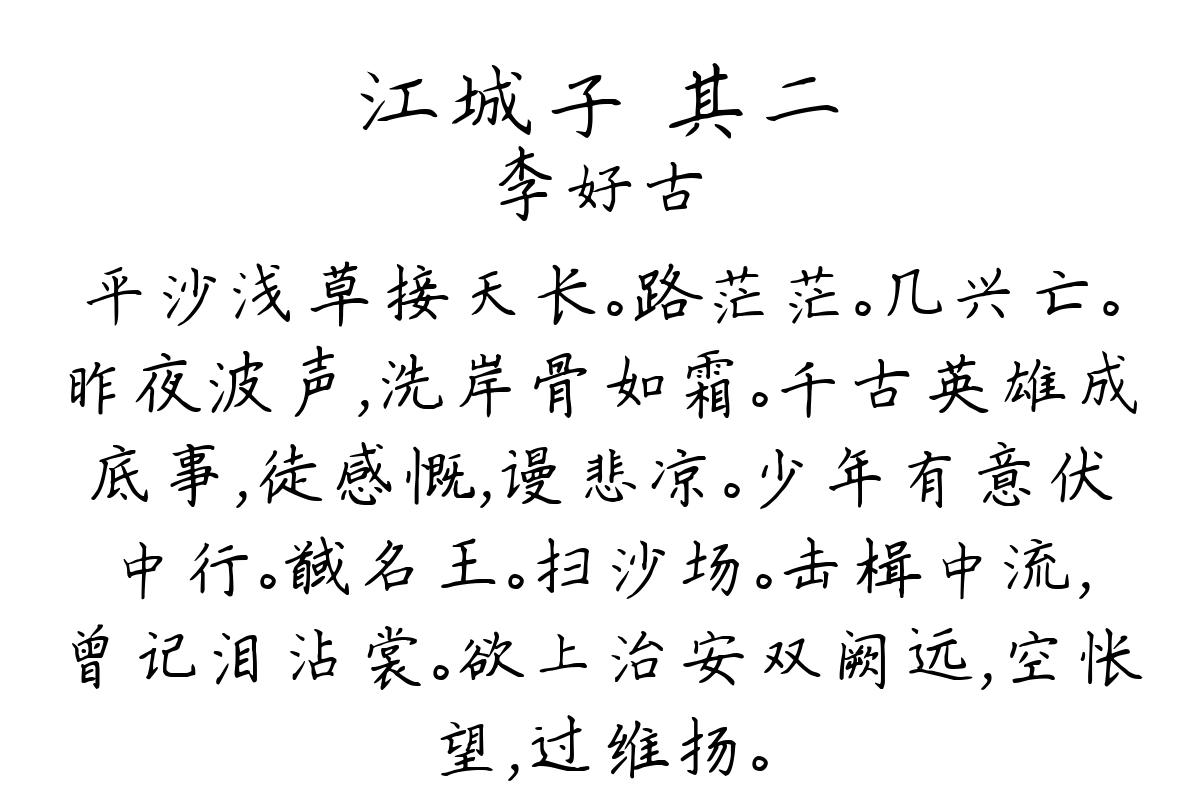 江城子 其二
李好古
平沙浅草接天长。路茫茫。几兴亡。
昨夜波声,洗岸骨如霜。千古英雄成
底事,徒感慨,谩悲凉。少年有意伏
中行。馘名王。扫沙场。击楫中流,
曾记泪沾裳。欲上治安双阙远,空怅
望,过维扬。